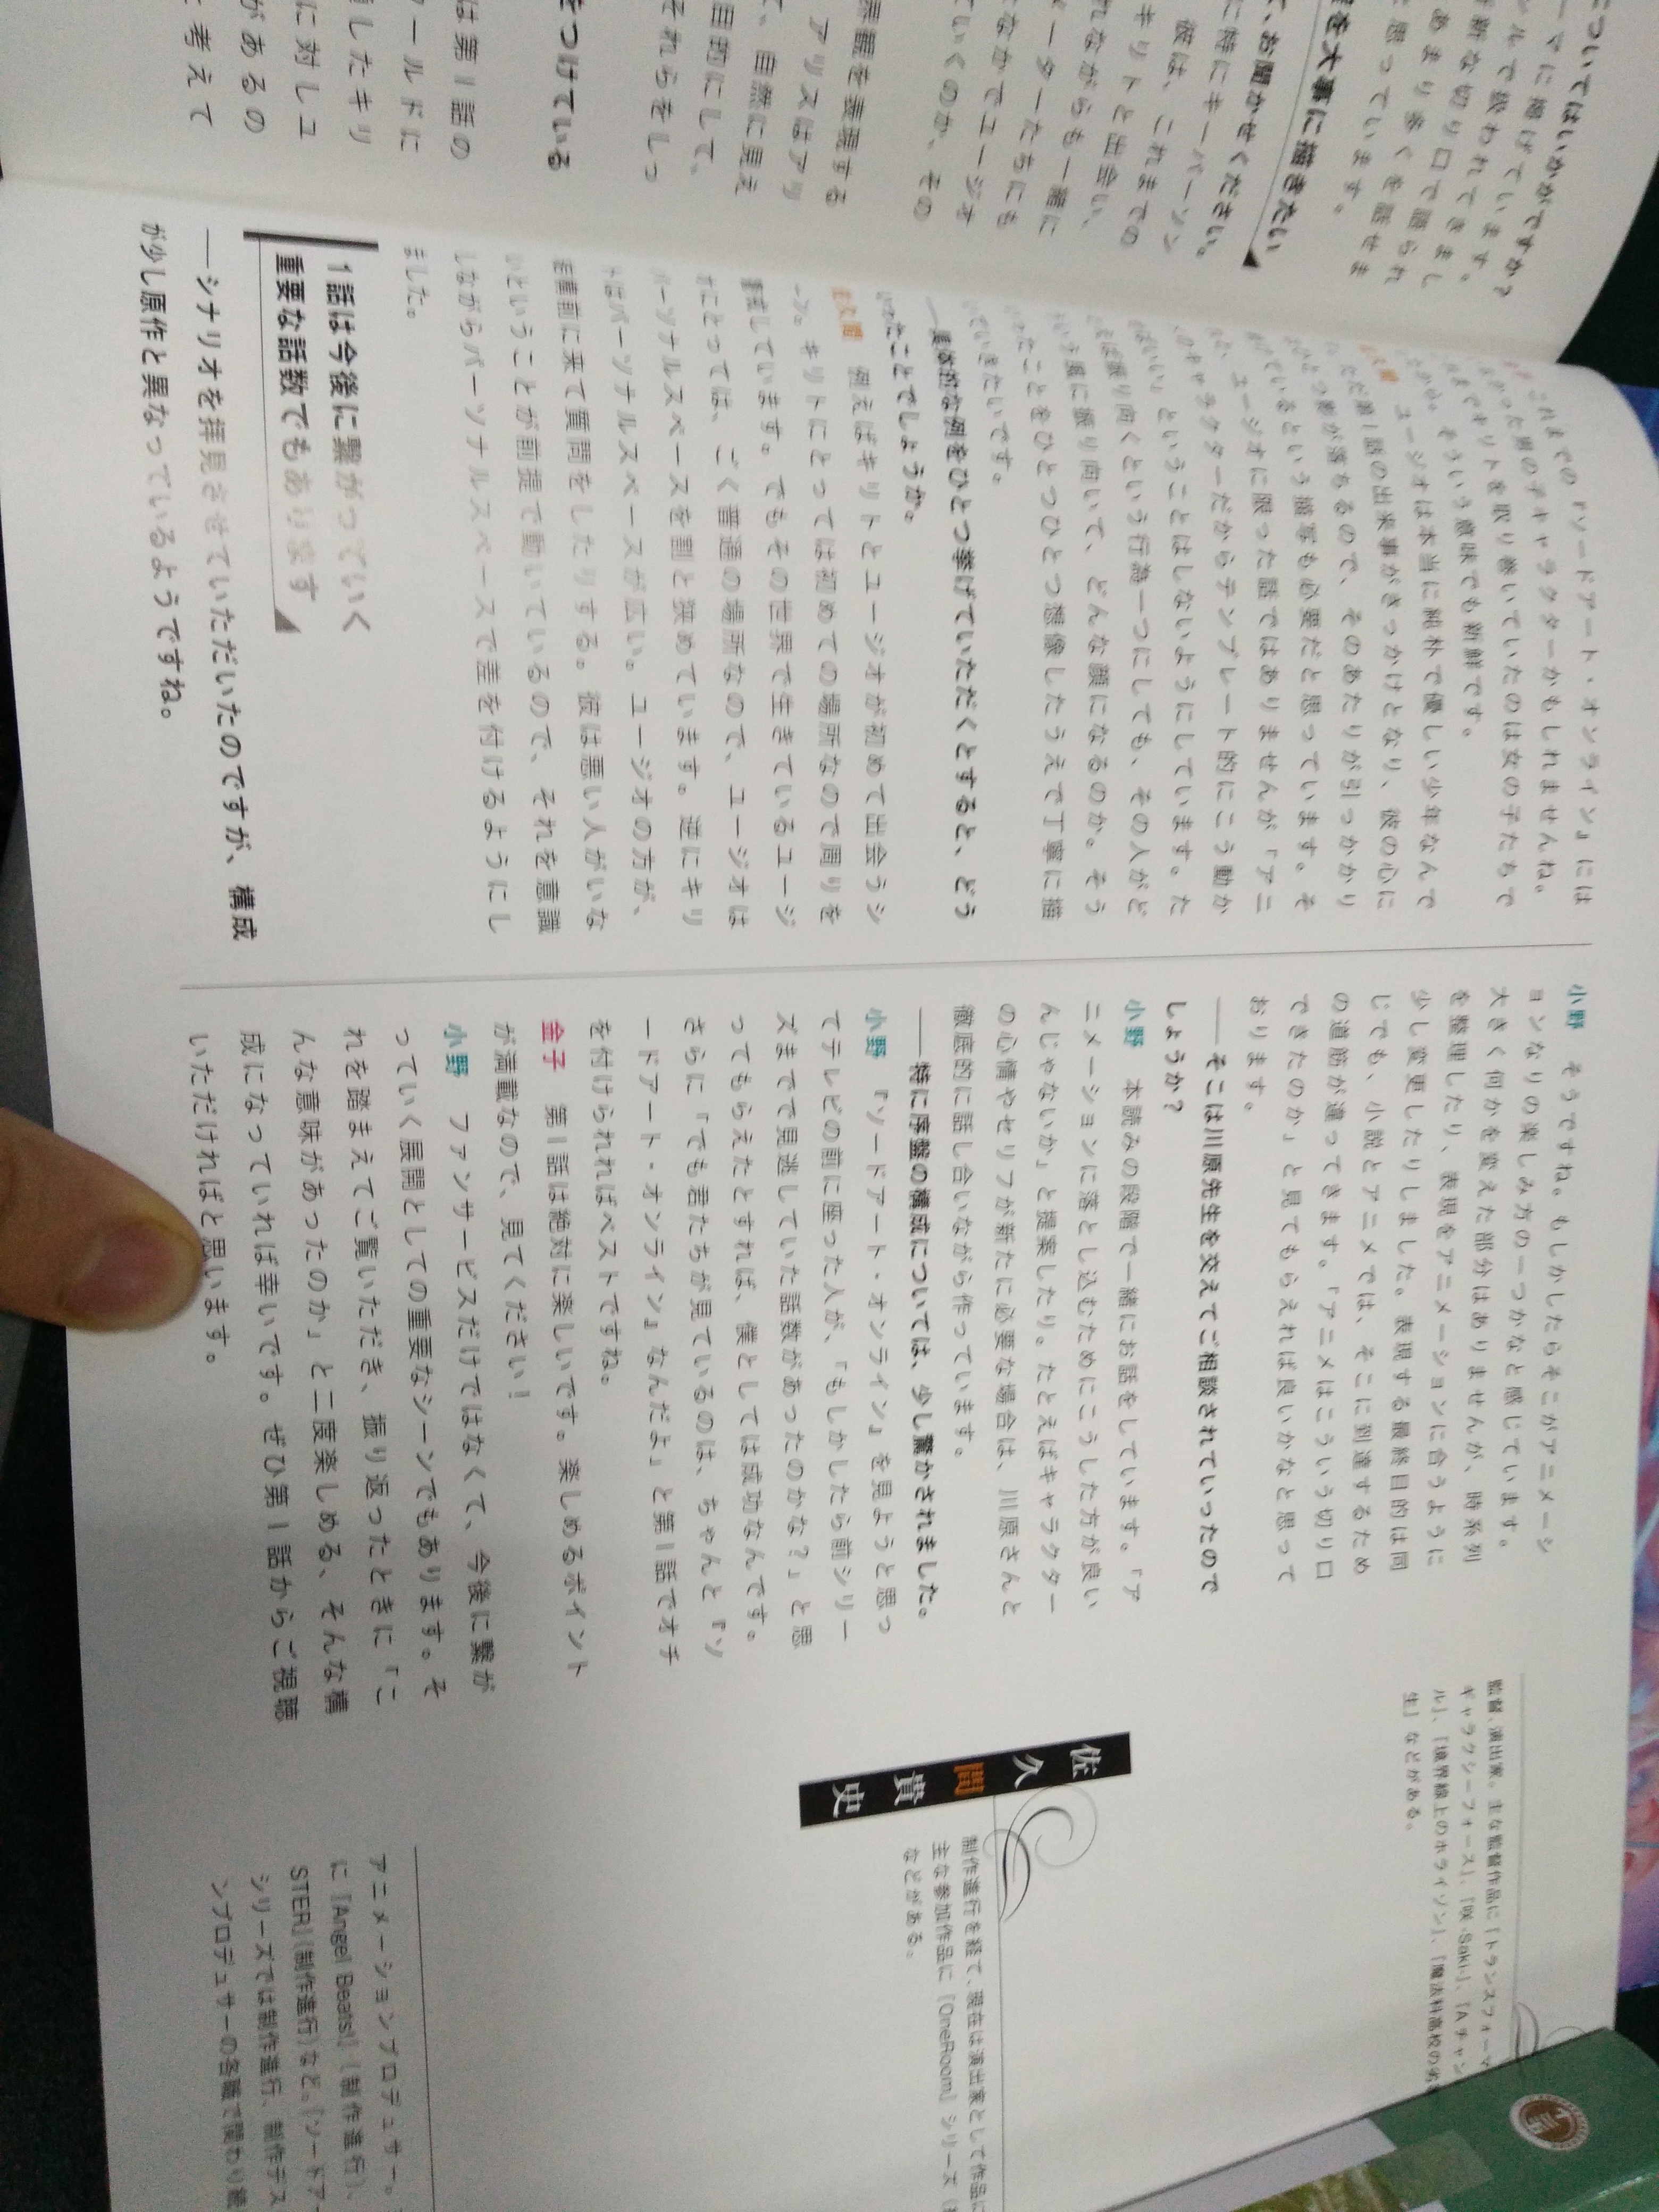 についてはいかがですか?
ーマに掲げています。
ンルで扱われてきまし
斬新な切り口で語られ
あまり多くを話せま
と思っています。
を大事に描きたい
、お聞かせください。
に特にキーパーソン
彼は、これまでの
キリトと出会い、
れながらも一緒に
ーターたちにも
なかでユージオ
ていくのか、その
アリスはアリ
、自然に見え
目的にして、
それらをしっ
をつけている
は第1話の
ールドに
したキリ
に対しユ
があるの
考えて
これまでの『ソードアート・オンライン』には
キャラクターかもしれませんね。
までキリトを取り巻いていたのは女の子たちで
そういう意味でも新鮮です。
ユージオは本当に純朴で優しい少年なんで
ただ第1話の出来事がきっかけとなり、彼の心に
ひとつ影が落ちるので、そのあたりが引っかかり
ているという描写も必要だと思っています。そ
ユージオに限った話ではありませんが「アニ
キャラクターだからテンプレート的にこう動か
ばいい」ということはしないようにしています。た
えば振り向くという行為一つにしても、その人がど
いう風に振り向いて、どんな顔になるのか。そう
ったことをひとつひとつ想像したうえで丁寧に描
いていきたいです。
――具体的な例をひとつ挙げていただくとすると、どう
いったことでしょうか。
佐久間 例えばキリトとユージオが初めて出会うシ
ーン。キリトにとっては初めての場所なので周りを
警戒しています。でもその世界で生きているユージ
オにとっては、ごく普通の場所なので、ユージオは
パーソナルスペースを割と狭めています。逆にキリ
トはパーソナルスペースが広い。ユージオの方が、
目の前に来て質問をしたりする。彼は悪い人がいな
いということが前提で動いているので、それを意識
しながらパーソナルスペースで差を付けるようにし
ました。
1話は今後に繋がっていく
重要な話数でもあります
――シナリオを拝見させていただいたのですが、構成
が少し原作と異なっているようですね。
小野 そうですね。もしかしたらそこがアニメーシ
ョンなりの楽しみ方の一つかなと感じています。
大きく何かを変えた部分はありませんが、時系列
を整理したり、表現をアニメーションに合うように
少し変更したりしました。表現する最終目的は同
じでも、小説とアニメでは、そこに到達するため
の道筋が違ってきます。「アニメはこういう切り口
できたのか」と見てもらえれば良いかなと思って
おります。
――そこは川原先生を交えてご相談されていったので
しょうか?
小野 本読みの段階で一緒にお話をしています。「ア
ニメーションに落とし込むためにこうした方が良い
んじゃないか」と提案したり。たとえばキャラクター
の心情やセリフが新たに必要な場合は、川原さんと
徹底的に話し合いながら作っています。
――特に序盤の構成については、少し驚かされました。
小野 『ソードアート・オンライン』を見ようと思っ
てテレビの前に座った人が、「もしかしたら前シリー
ズまでで見逃していた話数があったのかな?」と思
ってもらえたとすれば、僕としては成功なんです。
さらに「でも君たちが見ているのは、ちゃんと『ソ
ードアート・オンライン』なんだよ」と第1話でオチ
を付けられればベストですね。
金子 第1話は絶対に楽しいです。楽しめるポイント
が満載なので、見てください!
小野 ファンサービスだけではなくて、今後に繋が
っていく展開としての重要なシーンでもあります。そ
れを踏まえてご覧いただき、振り返ったときに「こ
んな意味があったのか」と二度楽しめる、そんな構
成になっていれば幸いです。ぜひ第1話からご視聴
いただければと思います。
監督、演出家。主な監督作品に『トランスフォーマ
ギャラクシーフォース』、『咲-Saki-』、『Aチャン
ル』、『境界線上のホライゾン』、『魔法科高校の劣
生』などがある。
佐久間貴史
制作進行を経て、現在は演出家として作品に
主な参加作品に『OneRoom』シリーズ
などがある。
アニメーションプロデュサー。
に『Angel Beats!』(制作進行)、
STER』(制作進行)など。『ソードアー
シリーズでは制作進行、制作デス
ンプロデュサーの各職で関わり